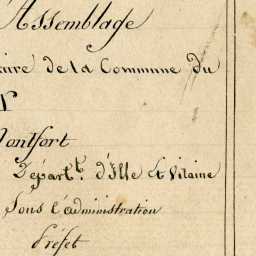 Assemblage
aire de la Commune du
Montfort
Départ.t d'Ille et Vilaine
Sous l'administration
Préfet